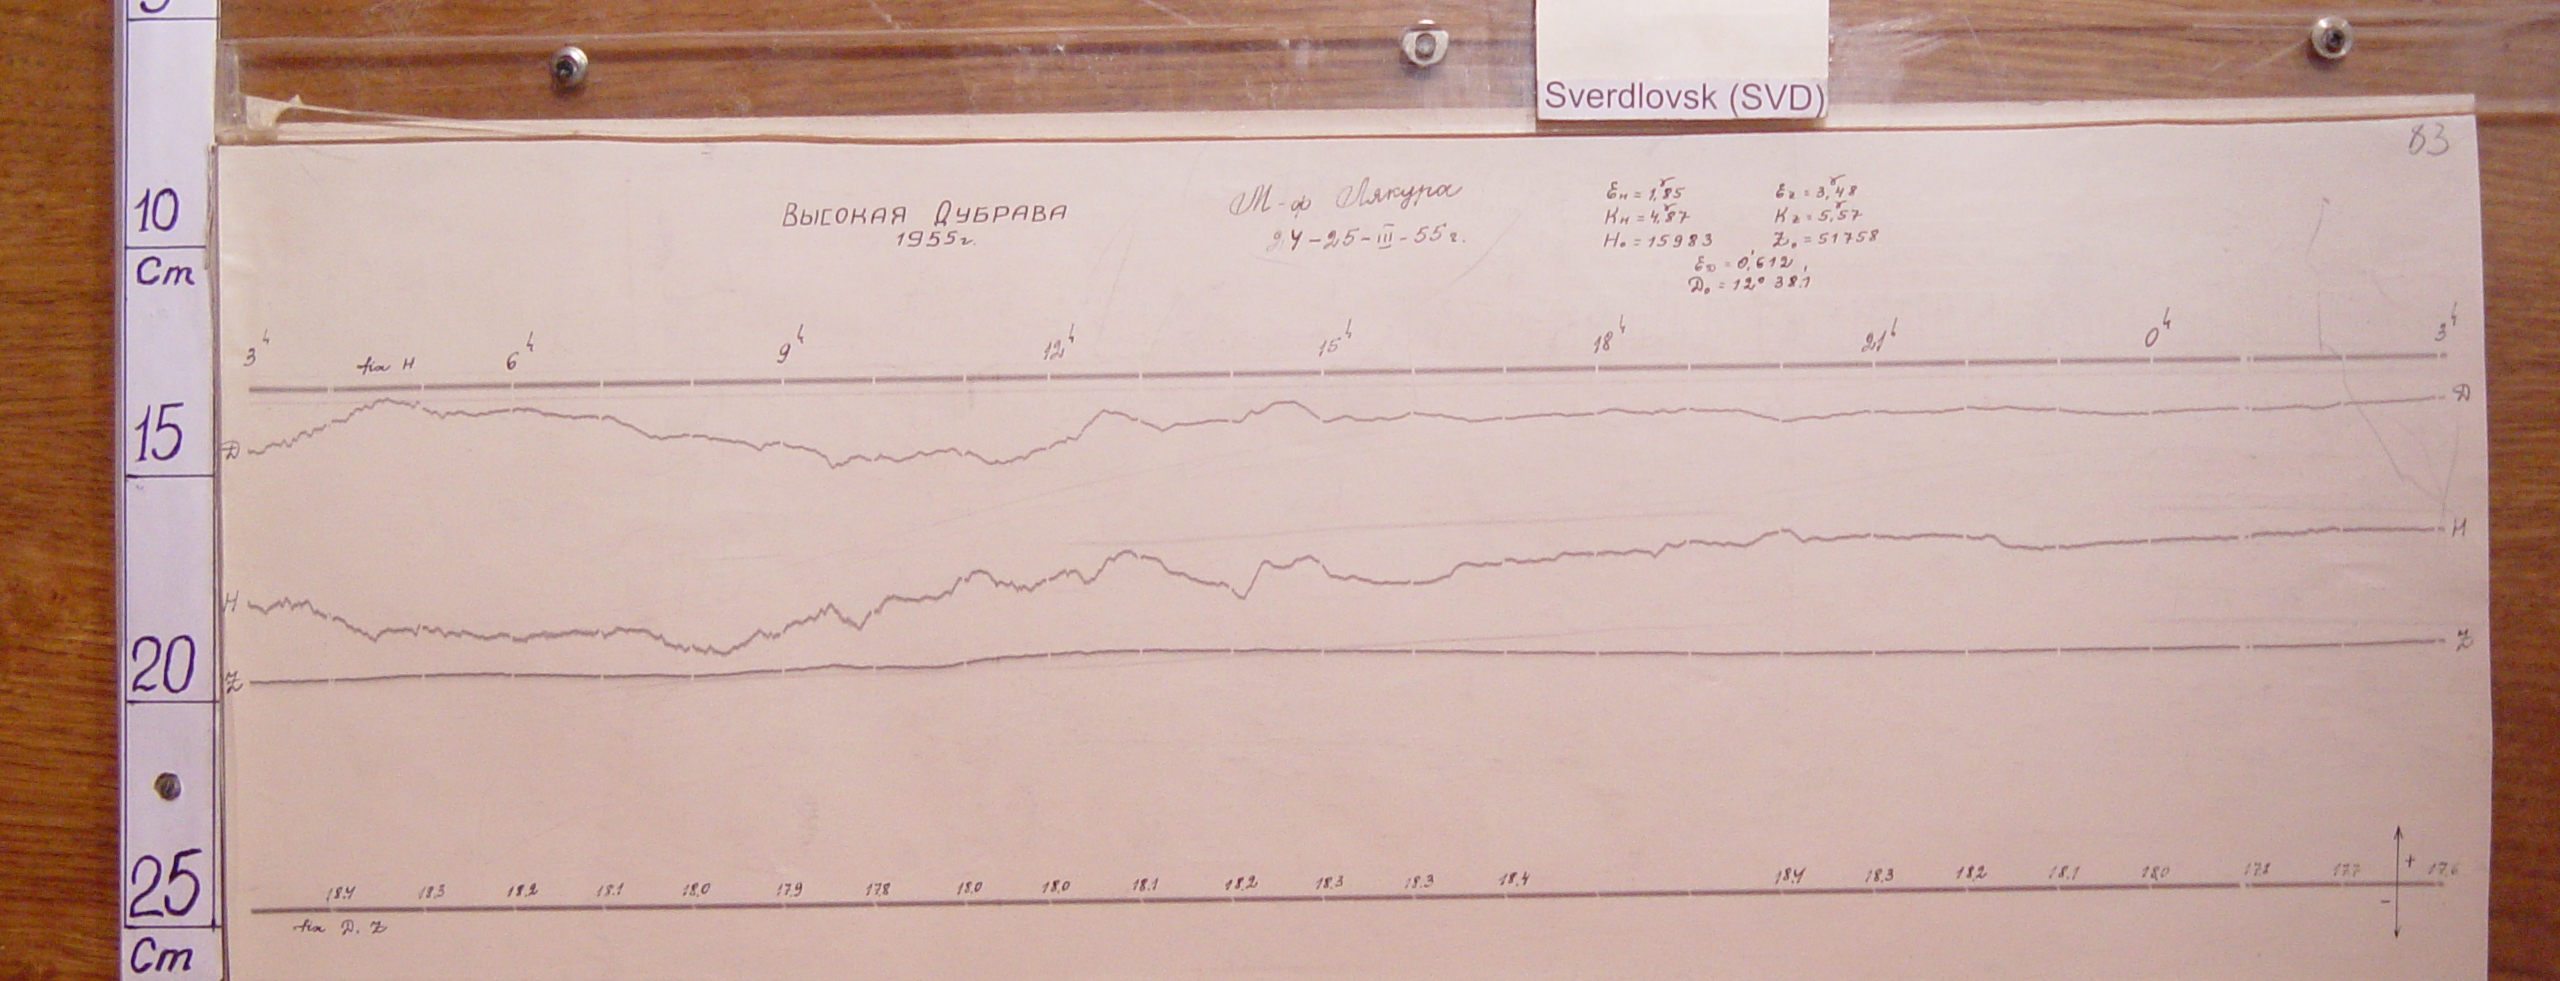 Sverdlovsk (SVD)
83
10
Cm
15
20
25
Cm
Высокая Дубрава
1955г.
М-ф Лякура
24-25-III-55г.
Ɛн = 1,γ85
Kн = 4,γ87
H₀ = 15983
Ɛz = 3,γ48
Kz = 5,γ57
Z₀ = 51758
ƐD = 0,'612
D₀ = 12° 38,'1
3ʰ 6ʰ 9ʰ 12ʰ 15ʰ 18ʰ 21ʰ 0ʰ 3ʰ
fix H
D D
H H
Z Z
18,4 18,3 18,2 18,1 18,0 17,9 17,8 18,0 18,0 18,1 18,2 18,3 18,3 18,4 18,4 18,3 18,2 18,1 18,0 17,8 17,7 17,6
+
-
fix D, Z